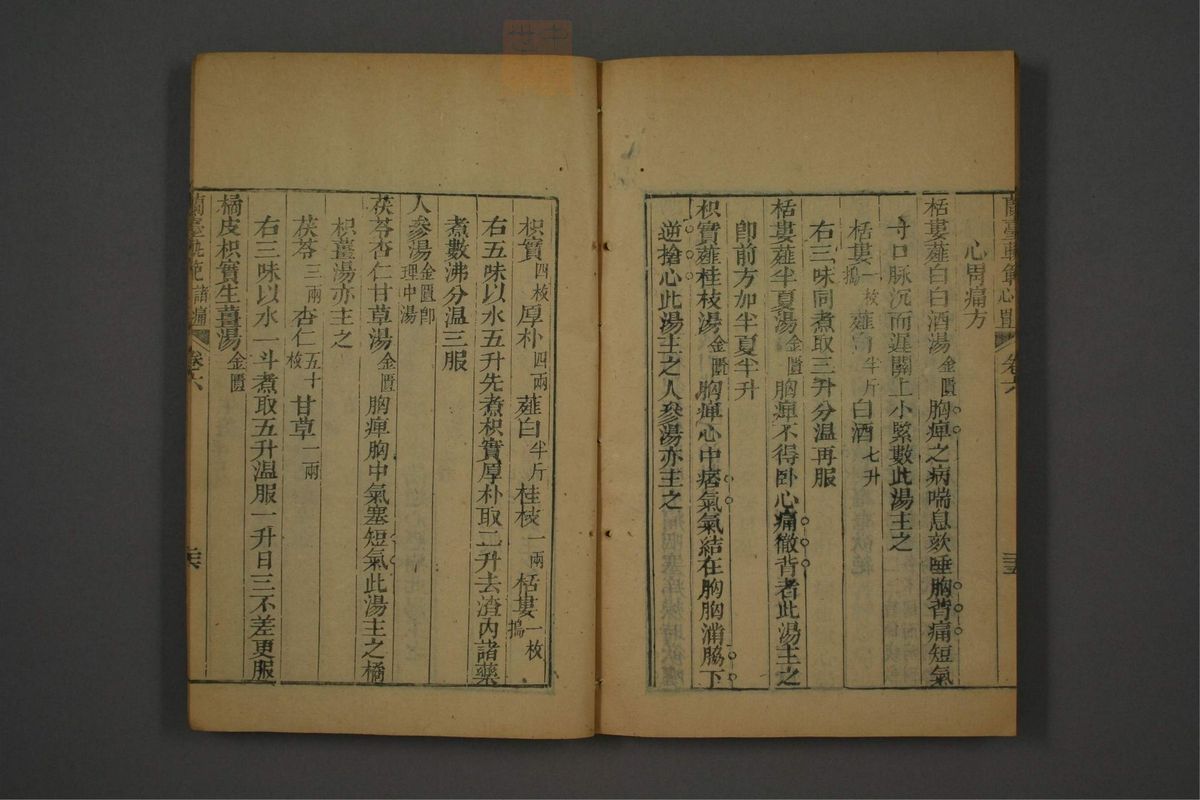 蘭臺軌範 卷六
心胃痛方
栝蔞薤白白酒湯金匱胸痺之病喘息欬唾胸背痛短氣
寸口脉沉而遲關上小緊數此湯主之
栝蔞一枚搗 薤白半斤 白酒七升
右三味同煮取三升分温再服
栝蔞薤半夏湯金匱胸痺不得卧心痛徹背者此湯主之
卽前方加半夏半升
枳實薤桂枝湯金匱胸痺心中痞氣氣結在胸胸滿脇下
逆搶心此湯主之人參湯亦主之
枳實四枚 厚朴四兩 薤白半斤 桂枝一兩 栝蔞一枚搗
右五味以水五升先煮枳實厚朴取二升去渣内諸藥
煮數沸分温三服
人參湯金匱卽理中湯
茯苓杏仁甘草湯金匱胸痺胸中氣塞短氣此湯主之橘
枳薑湯亦主之
茯苓三兩 杏仁五十枚 甘草一兩
右三味以水一斗煮取五升温服一升日三不差更服
橘皮枳實生薑湯金匱
蘭臺軌範 諸痛 卷六